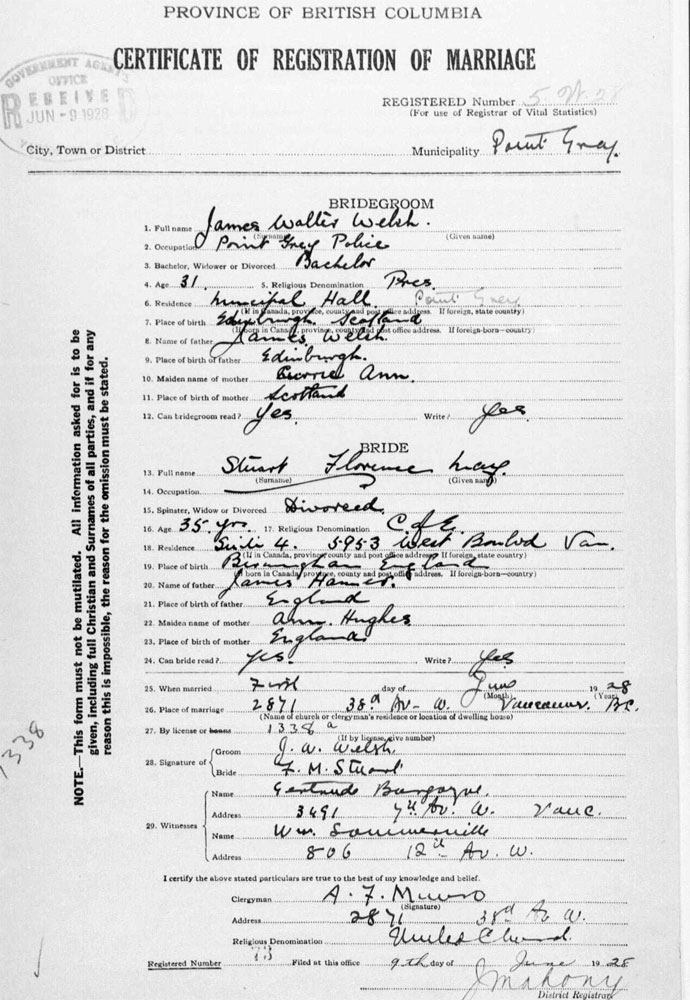 PROVINCE OF BRITISH COLUMBIA
CERTIFICATE OF REGISTRATION OF MARRIAGE
GOVERNMENT AGENT'S
OFFICE
RECEIVED
JUN -9 1928
REGISTERED Number 5 28
(For use of Registrar of Vital Statistics)
City, Town or District Municipality Point Grey.
BRIDEGROOM
1. Full name James Walter Welsh.
(Surname) (Given name)
2. Occupation Point Grey Police
3. Bachelor, Widower or Divorced Bachelor
4. Age 31. 5. Religious Denomination Pres.
6. Residence Municipal Hall. Point Grey
(If in Canada, province, county and post office address. If foreign, state country)
7. Place of birth Edinburgh Scotland
(If born in Canada, province, county and post office address. If foreign-born—country)
8. Name of father James Welsh.
9. Place of birth of father Edinburgh.
10. Maiden name of mother Ann.
11. Place of birth of mother Scotland
12. Can bridegroom read? Yes Write? Yes.
BRIDE
13. Full name Stuart Florence May.
(Surname) (Given name)
14. Occupation
15. Spinster, Widow or Divorced Divorced.
16. Age 35 yrs. 17. Religious Denomination C of E.
18. Residence Suite 4. 5953 West Boulvd Van.
(If in Canada, province, county and post office address. If foreign, state country)
19. Place of birth Birmingham England
(If born in Canada, province, county and post office address. If foreign-born—country)
20. Name of father James Hanner.
21. Place of birth of father England
22. Maiden name of mother Ann. Hughes
23. Place of birth of mother England
24. Can bride read? Yes. Write? Yes.
25. When married First day of June 1928
(Month) (Year)
26. Place of marriage 2871 38th Av- W. Vancouver. B.C.
(Name of church or clergyman's residence or location of dwelling house)
27. By license or banns 1338 a
(If by license, give number)
28. Signature of Groom J. W. Welsh.
Bride F. M. Stuart
29. Witnesses Name Gertrude Burgoyne.
Address 3491 7th Av. W. Vanc.
Name Wm. Sommerville
Address 806 12th Av. W.
I certify the above stated particulars are true to the best of my knowledge and belief.
Clergyman A. F. Munro
(Signature)
Address 2871 38th Av W.
Religious Denomination United Church.
Registered Number 73 Filed at this office 9th day of June 1928
J Mahony
District Registrar
NOTE.—This form must not be mutilated. All information asked for is to be
given, including full Christian and Surnames of all parties, and if for any
reason this is impossible, the reason for the omission must be stated.
1338